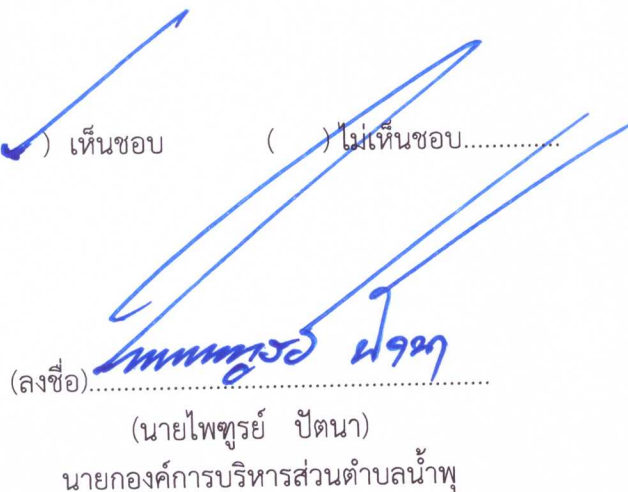 ✓ ) เห็นชอบ ( ) ไม่เห็นชอบ..............
(ลงชื่อ)................................................................
(นายไพฑูรย์ ปัตนา)
นายกองค์การบริหารส่วนตำบลน้ำพุ